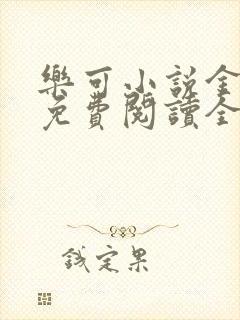 樂可小說全
免費閱讀全
錢定果